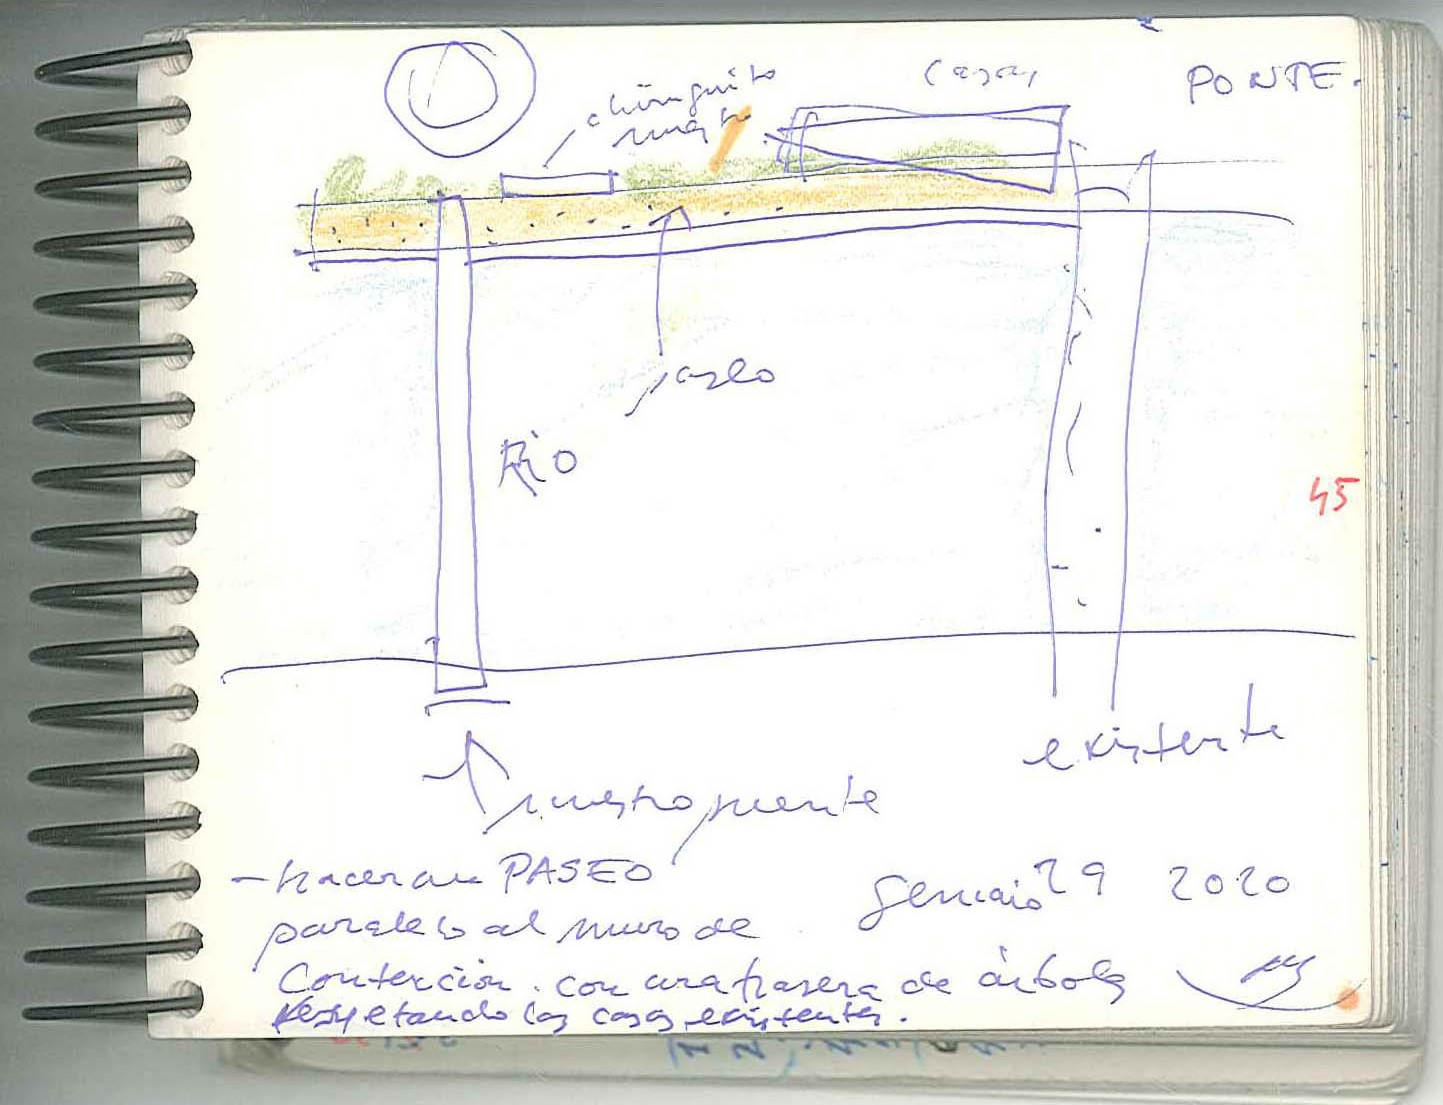 casas
PONTE.
chiringuito
nuestro
paseo
Río
45
existente
nuestro puente
- hacer un PASEO
paralelo al muro de
gennaio 29 2020
Contención. con una trasera de árboles
Respetando las casas existentes.